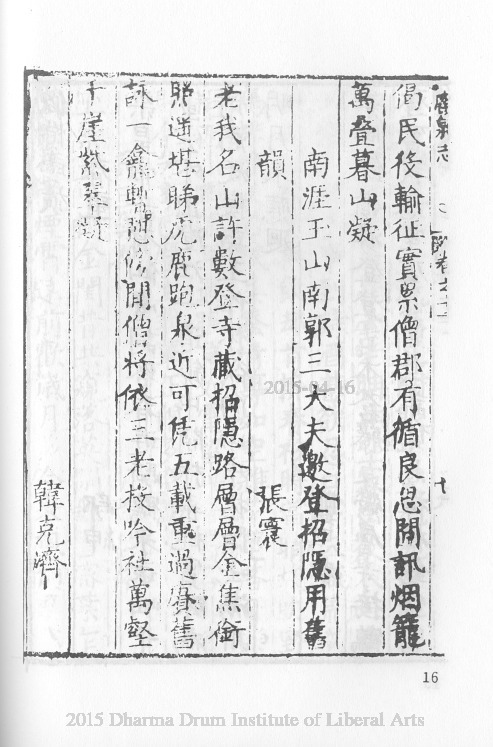 偈民役輸征實累僧郡有循良忍問訊烟籠
萬疊暮山凝
南涯玉山南郭三大夫邀登招隱用舊
韻 張寰
老我名山許數登寺藏招隱路層層金焦銜
堪睇虎鹿跑泉近可凭五載重過賡舊
詠一龕暫憩伴閒僧將依三老投吟社萬壑
千崖紫翠凝
韓克濟
志
卷之
十
2015-04-16
16
2015 Dharma Drum Institute of Liberal Arts